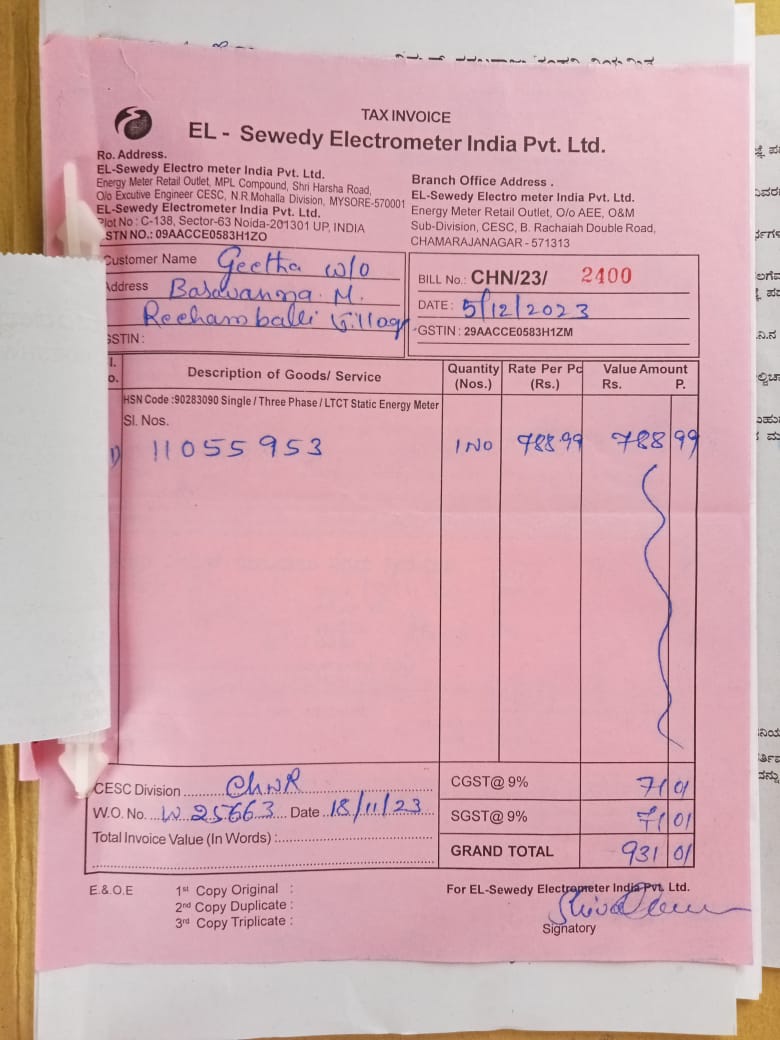 TAX INVOICE
EL - Sewedy Electrometer India Pvt. Ltd.
Ro. Address.
EL-Sewedy Electro meter India Pvt. Ltd.
Energy Meter Retail Outlet, MPL Compound, Shri Harsha Road,
O/o Excutive Engineer CESC, N.R.Mohalla Division, MYSORE-570001
EL-Sewedy Electrometer India Pvt. Ltd.
Plot No : C-138, Sector-63 Noida-201301 UP, INDIA
GSTN NO.: 09AACCE0583H1ZO
Branch Office Address .
EL-Sewedy Electro meter India Pvt. Ltd.
Energy Meter Retail Outlet, O/o AEE, O&M
Sub-Division, CESC, B. Rachaiah Double Road,
CHAMARAJANAGAR - 571313
Customer Name Geetha w/o
Address Basavanna M.
Rechamballi Village
GSTIN :
BILL No.: CHN/23/ 2400
DATE : 5/12/2023
GSTIN : 29AACCE0583H1ZM
Description of Goods/ Service Quantity (Nos.) Rate Per Pc (Rs.) Value Amount Rs. P.
HSN Code :90283090 Single / Three Phase / LTCT Static Energy Meter
Sl. Nos.
1) 11055953 1 NO 788.99 788 99
CESC Division CHNR
W.O. No. W 25663 Date 18/11/23
Total Invoice Value (In Words) :
CGST@ 9% 71 01
SGST@ 9% 71 01
GRAND TOTAL 931 01
E.&.O.E 1st Copy Original :
2nd Copy Duplicate :
3rd Copy Triplicate :
For EL-Sewedy Electrometer India Pvt. Ltd.
Signatory